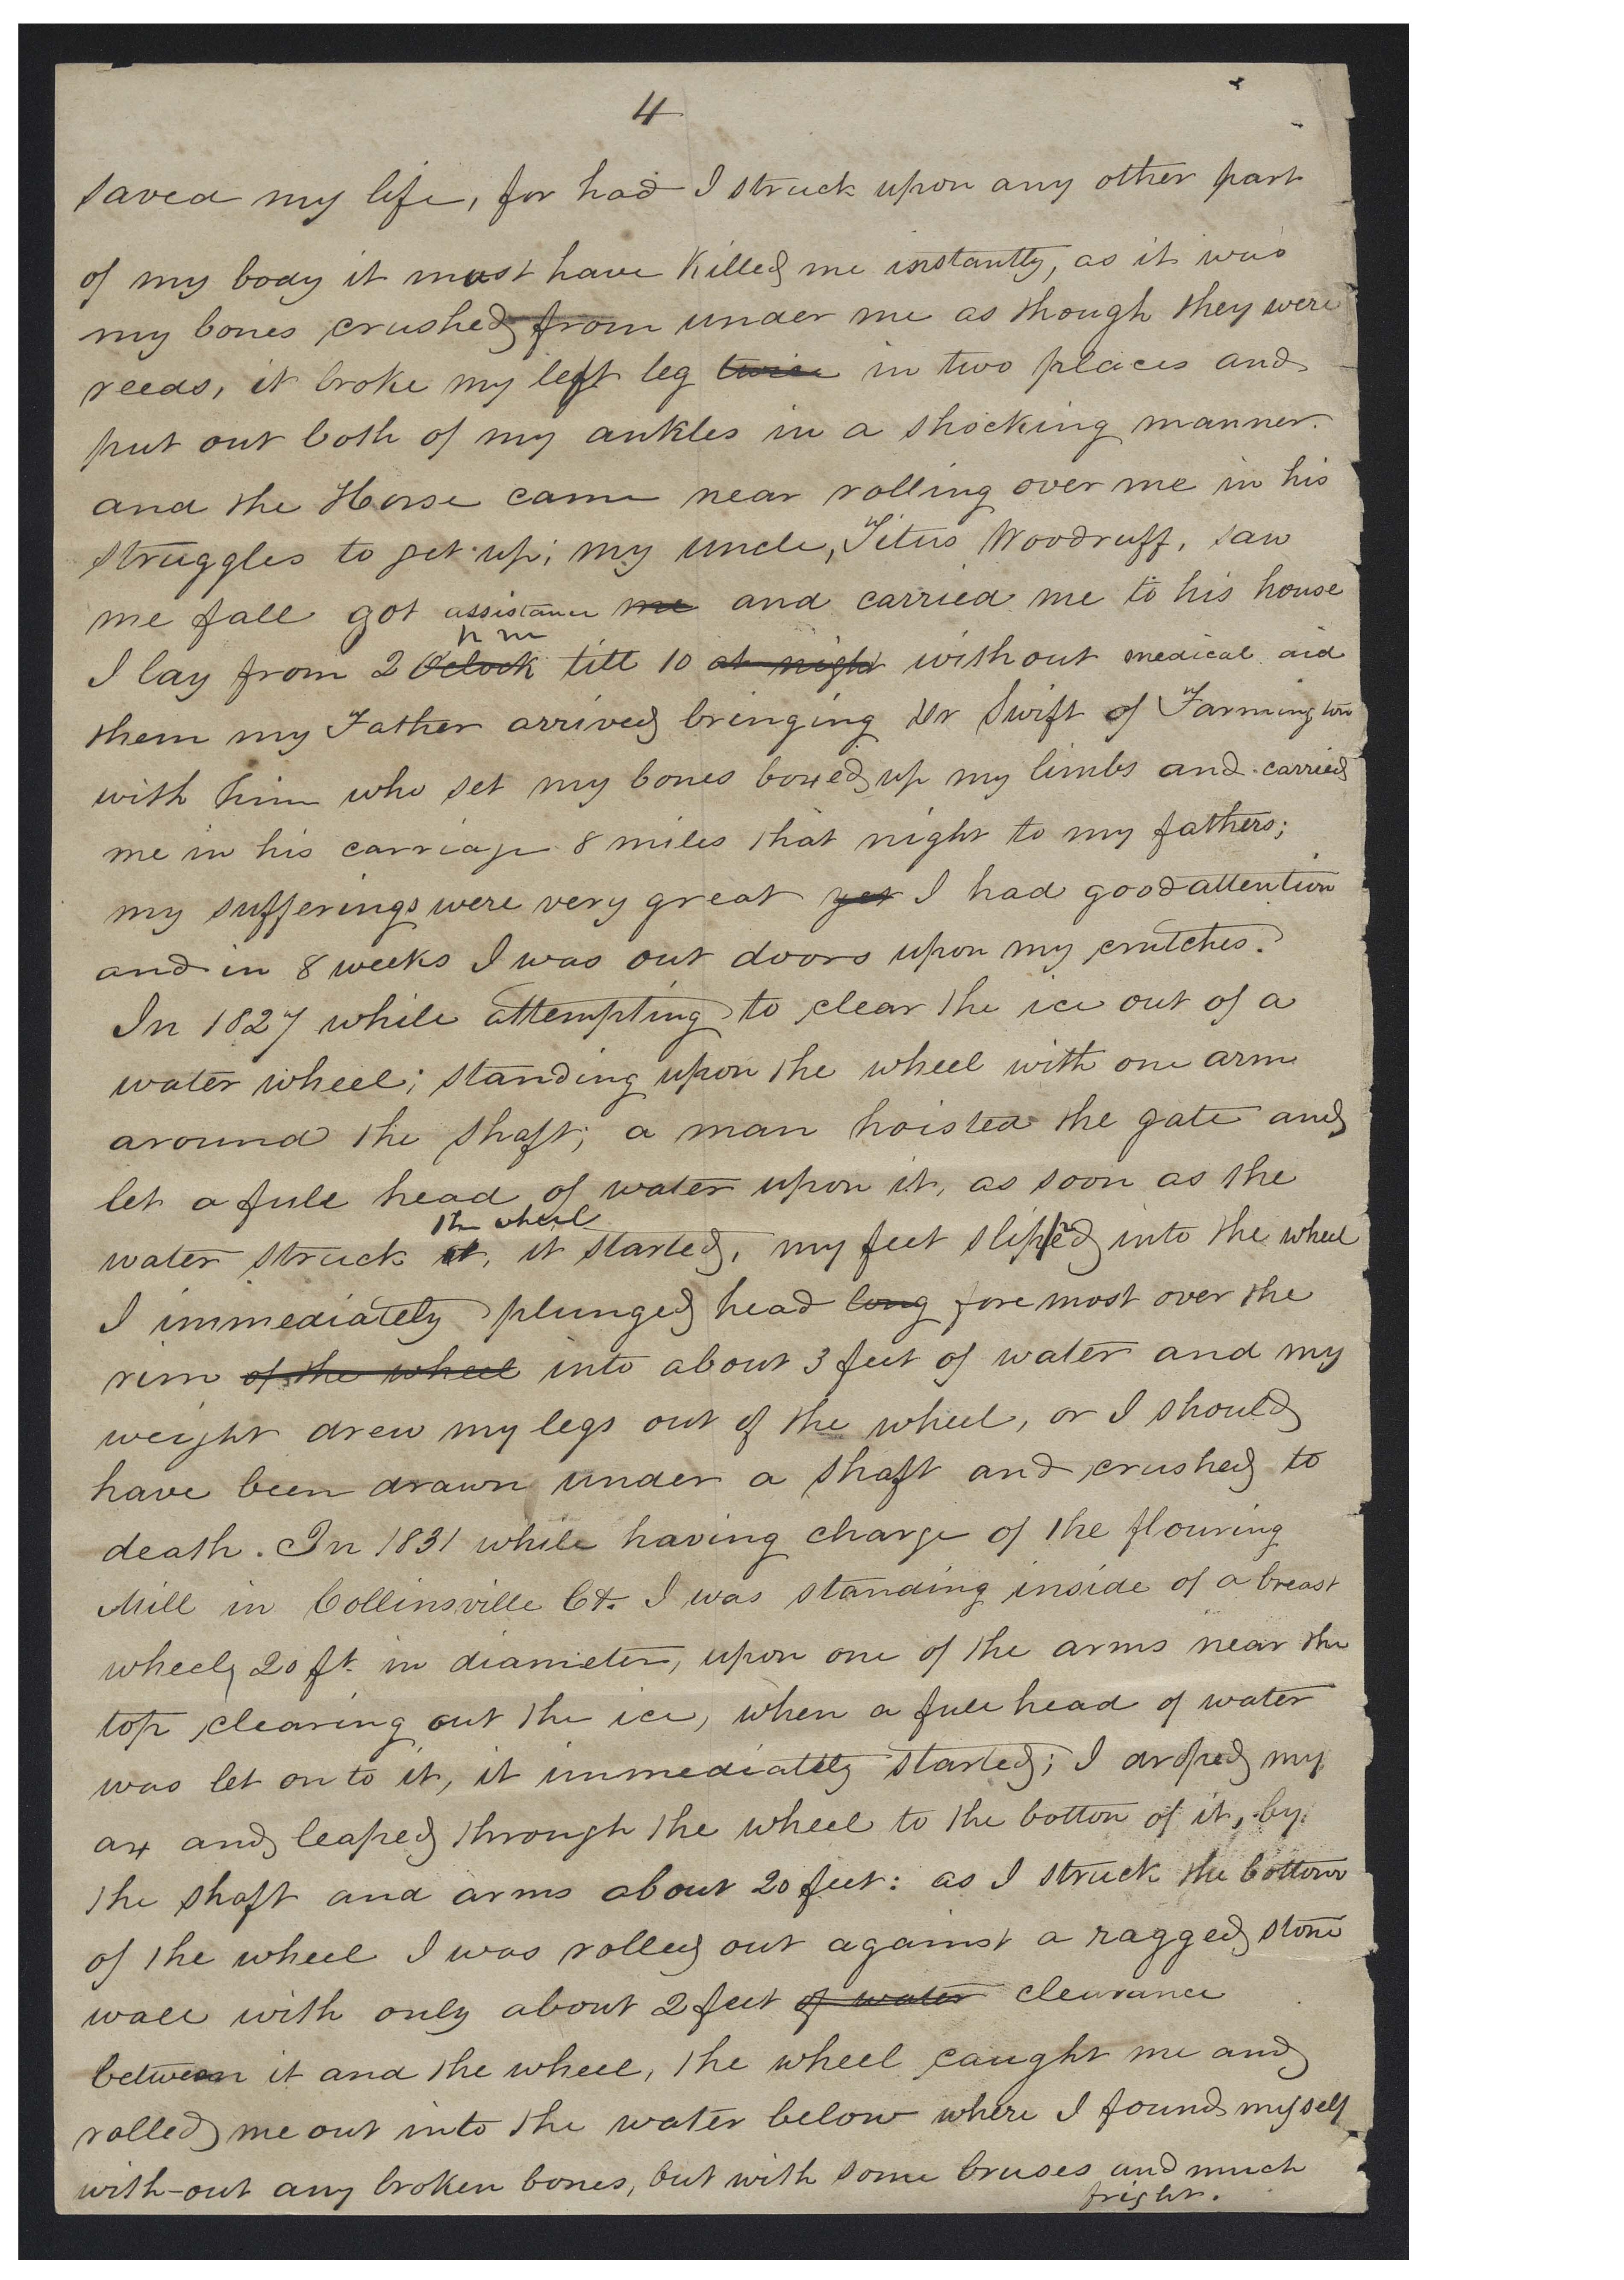 4
saved my life, for had I struck upon any other part
of my body it must have killed me instantly, as it was
my bones crushed from under me as though they were
reeds, it broke my left leg twice in two places and
put out both of my ankles in a shocking manner.
and the Horse came near rolling over me in his
struggles to get up; my uncle, Titus Woodruff, saw
me fall got assistance me and carried me to his house
p m
I lay from 2 O'clock till 10 at night without medical aid
them my Father arrived bringing Dr Swift of Farmington
with him who set my bones boxed up my limbs and carried
me in his carriage 8 miles that night to my fathers;
my sufferings were very great yet I had good attention
and in 8 weeks I was out doors upon my crutches.
In 1827 while attempting to clear the ice out of a
water wheel; standing upon the wheel with one arm
around the shaft; a man hoisted the gate and
let a full head of water upon it, as soon as the
the wheel
water struck it, it started, my feet sliped into the wheel
I immediately plunged head long fore most over the
rim of the wheel into about 3 feet of water and my
weight drew my legs out of the wheel, or I should
have been drawn under a shaft and crushed to
death. In 1831 while having charge of the flouring
Mill in Collinsville Ct. I was standing inside of a breast
wheel, 20 ft. in diameter, upon one of the arms near the
top clearing out the ice, when a full head of water
was let on to it, it immediately started; I droped my
ax and leaped through the wheel to the bottom of it, by
the shaft and arms about 20 feet: as I struck the bottom
of the wheel I was rolled out against a ragged stone
wall with only about 2 feet of water clearance
between it and the wheel, the wheel caught me and
rolled me out into the water below where I found myself
with-out any broken bones, but with some bruses and much
fright.